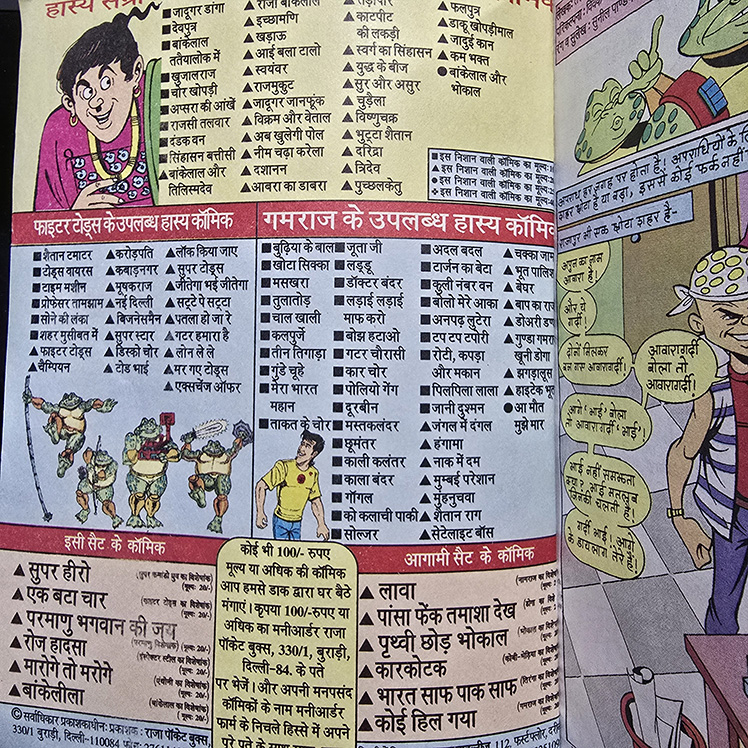 हास्य
जादूगर डांगा
देवपुत्र
बांकेलाल
ततैयालोक में
खुजालराज
चोर खोपड़ी
अप्सरा की आंखें
राजसी तलवार
दंडक वन
सिंहासन बत्तीसी
बांकेलाल और
तिलिस्मदेव
राजा बांकेलाल
इच्छामणि
खड़ाऊ
आई बला टालो
स्वयंवर
राजमुकुट
जादूगर जानफूंक
विक्रम और वेताल
अब खुलेगी पोल
नीम चढ़ा करेला
दशानन
आबरा का डाबरा
काटपीट
की लकड़ी
स्वर्ग का सिंहासन
युद्ध के बीज
सुर और असुर
चुड़ैला
विष्णुचक्र
भुट्टा शैतान
दरिद्रा
त्रिदेव
पुच्छलकेतु
फलपुत्र
डाकू खोपड़ीमाल
जादुई कान
कम भक्त
बांकेलाल और
भोकाल
इस निशान वाली कॉमिक का मूल्य
इस निशान वाली कॉमिक का मूल्य
इस निशान वाली कॉमिक का मूल्य
इस निशान वाली कॉमिक का मूल्य
फाइटर टोड्स के उपलब्ध हास्य कॉमिक
शैतान टमाटर
टोड्स वायरस
टाइम मशीन
प्रोफेसर तामझाम
सोने की लंका
शहर मुसीबत में
फाइटर टोड्स
चैम्पियन
करोड़पति
कबाड़नगर
मूषकराज
नई दिल्ली
बिजनेसमैन
सुपर स्टार
डिस्को चोर
टोड भाई
लॉक किया जाए
सुपर टोड्स
जीतेगा भई जीतेगा
सट्टे पे सट्टा
पतला हो जा रे
गटर हमारा है
लोन ले ले
मर गए टोड्स
एक्सचेंज ऑफर
गमराज के उपलब्ध हास्य कॉमिक
बुढ़िया के बाल
खोटा सिक्का
मसखरा
तुलातोड़
चाल खाली
कलपुर्जे
तीन तिगाड़ा
गुंडे चूहे
मेरा भारत
महान
ताकत के चोर
जूता जी
लड्डू
डॉक्टर बंदर
लड़ाई लड़ाई
माफ करो
बोझ हटाओ
गटर चौरासी
कार चोर
पोलियो गैंग
दूरबीन
मस्तकलंदर
छूमंतर
काली कलंतर
काला बंदर
गोंगल
को कलाची पाकी
सोल्जर
अदल बदल
टार्जन का बेटा
कुली नंबर वन
बोलो मेरे आका
अनपढ़ लुटेरा
टप टप टपोरी
रोटी, कपड़ा
और मकान
पिलपिला लाला
जानी दुश्मन
जंगल में दंगल
हंगामा
नाक में दम
मुम्बई परेशान
मुंहनुचवा
शैतान राग
सैटेलाइट बॉस
चक्का जा
भूत पालि
बेघर
बाप का रा
डोअरी डण
गुण्डा गम
खूनी डोगा
झगड़ालू
हाइटेक भू
आ मौत
मुझे मार
इसी सैट के कॉमिक
सुपर हीरो
एक बटा चार
परमाणु भगवान की जय
रोज हादसा
मारोगे तो मरोगे
बांकेलीला
कोई भी 100/- रुपए
मूल्य या अधिक की कॉमिक
आप हमसे डाक द्वारा घर बैठे
मंगाएं। कृपया 100/-रुपए या
अधिक का मनीआर्डर राजा
पॉकेट बुक्स, 330/1, बुराड़ी,
दिल्ली-84. के पते
पर भेजें। और अपनी मनपसंद
कॉमिकों के नाम मनीआर्डर
फार्म के निचले हिस्से में अपने
पूरे पते के साथ
आगामी सैट के कॉमिक
लावा
पांसा फेंक तमाशा देख
पृथ्वी छोड़ भोकाल
कारकोटक
भारत साफ पाक साफ
कोई हिल गया
© सर्वाधिकार प्रकाशकाधीन: प्रकाशक : राजा पॉकेट बुक्स,
330/1 बुराड़ी, दिल्ली-110084
112, फर्स्टफ्लोर, दरी
अपराध हर जगह पर होता है। अपराधियों के लि
शहर छोटा है या बड़ा, इससे कोई फर्क नहीं
राजापुर भी एक छोटा शहर है-
अपुन का नाम
आवारा है!
और ये
गर्दी!
दोनों मिलकर
बन गास आवारागर्दी!
आवारागर्दी
बोला तो
आवारागर्दी!
आगे 'भाई' बोला
तो आवारागर्दी 'भाई'!
भाई नहीं समझता
क्या? भाई मतलब
जिनकी चलती है!
गर्दी भाई! आगे
के डायलाग तेरे हैं!